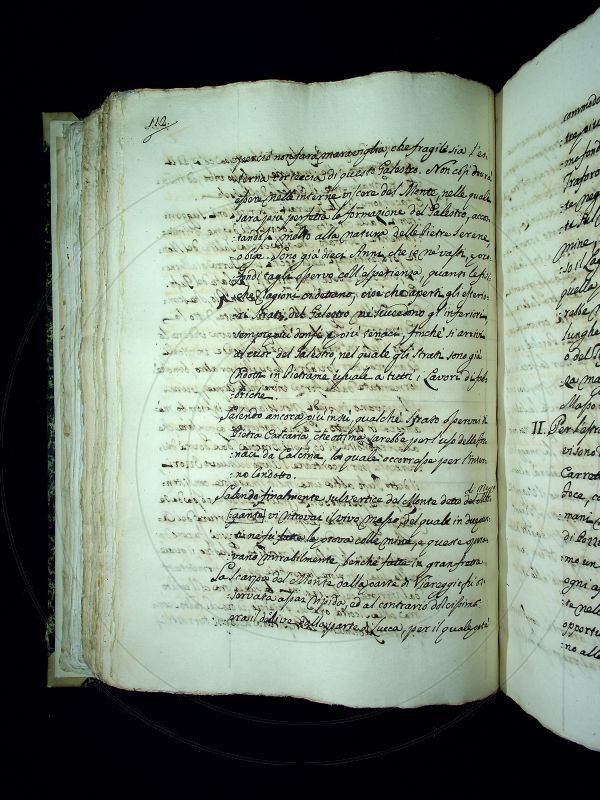 112.
perciò non farà maraviglia, che fragile sia l'es-
terna corteccia di questo Galestro. Non così dovrà
essere nelle interne viscere del Monte, nelle quali
sarà più perfetta la formazione del Galestro, accos-
tandosi molto alla natura delle Pietre Serene,
o bige. Sono già dieci Anni, che ne' vasti, e pro-
fondi tagli osservo coll'esperienza, quanto le fisi-
che Ragioni ci dettano, cioè che aperti gli esterio-
ri Strati del Galestro, ne succedono gl'inferiori
sempre più densi, e più tenaci, finchè si arriva
al cuor del Galestro, nel quale gli Strati sono già
ridotti in Pietrame usuale a tutti i Lavori di fab-
briche.
Salendo ancora più in su, qualche Strato osservai di
Pietra Calcaria, che ottima sarebbe per l'uso delle for-
naci da Calcina, la quale occorresse per l'inter-
no Condotto.
Salendo finalmente sul vertice del Monte detto
gante vi ritrovai il vivo Masso, del quale in
te ne fu fatta la prova colle mine, e queste opera-
vano mirabilmente, benchè fatte in gran fretta
La Scarpa del Monte dalla parte di Viareggio fu os-
servata assai ripida, ed al contrario dolcissimo
era il declive dalla parte di Lucca, per il quale
commodo
tre più
mo fond
Traforo
te peg
mine
so il
quella
rebbe
lunghe
o del
da ma
Masso
II. Per l'estr
vi sono
Carrett
foce, c
mani
di Pozz
me un
ogni a
te nelle
opportu
no alle